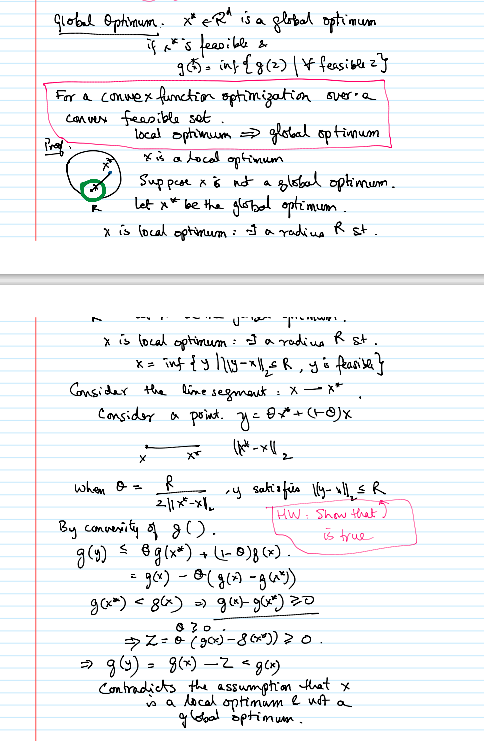 Global Optimum. x* ∈ R^d is a global optimum
if x* is feasible &
g(x*) = inf { g(z) | ∀ feasible z }
For a convex function optimization over a
convex feasible set.
local optimum ⇒ global optimum
Proof:
x*
x
R
x is a local optimum
Suppose x is not a global optimum.
Let x* be the global optimum.
x is local optimum : ∃ a radius R st.
x is local optimum : ∃ a radius R st.
x = inf { y | ||y-x||₂ ≤ R, y is feasible }
Consider the line segment : x — x*.
Consider a point. y = θx* + (1-θ)x
x x* ||x* - x||₂
When θ = R / 2||x*-x||₂, y satisfies ||y-x||₂ ≤ R
HW: Show that
is true
By convexity of g().
g(y) ≤ θ g(x*) + (1-θ) g(x).
= g(x) - θ( g(x) - g(x*))
g(x*) < g(x) ⇒ g(x) - g(x*) ≥ 0
θ ≥ 0.
⇒ Z = θ (g(x) - g(x*)) ≥ 0.
⇒ g(y) = g(x) - Z < g(x)
Contradicts the assumption that x
is a local optimum & not a
global optimum.